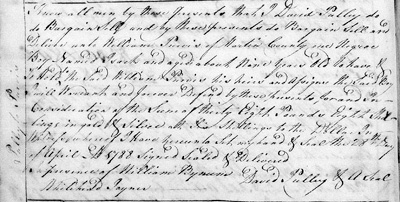 Know all men by these presents that I David Pulley do
do Bargain Sell and by these presents do Bargain Sell and
unto William Purvis of Martin County one Negroe
Boy Named and aged about Nine Years Old To have &
to Hold the said William Purvis his heirs and assigns the said Boy
I will Warrant and forever Defend by these presents for and In
Consideration of the Sum of thirty Eight Pounds Eight Shil
lings in gold & Silver at Shillings to the Dollar In
Witness whereof I have hereunto Set my hand & Seal the Day
of April 1788 Signed Sealed & Delivered
In presence of William
David Pulley & A Seal
Joyner